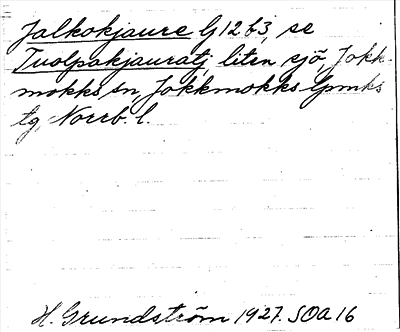 Jalkokjaure G12b3, se
Tuolpakjauratj, liten sjö, Jokk-
mokks sn, Jokkmokks lpmks
tg, Norrb. l.
H. Grundström 1927. SOA 16